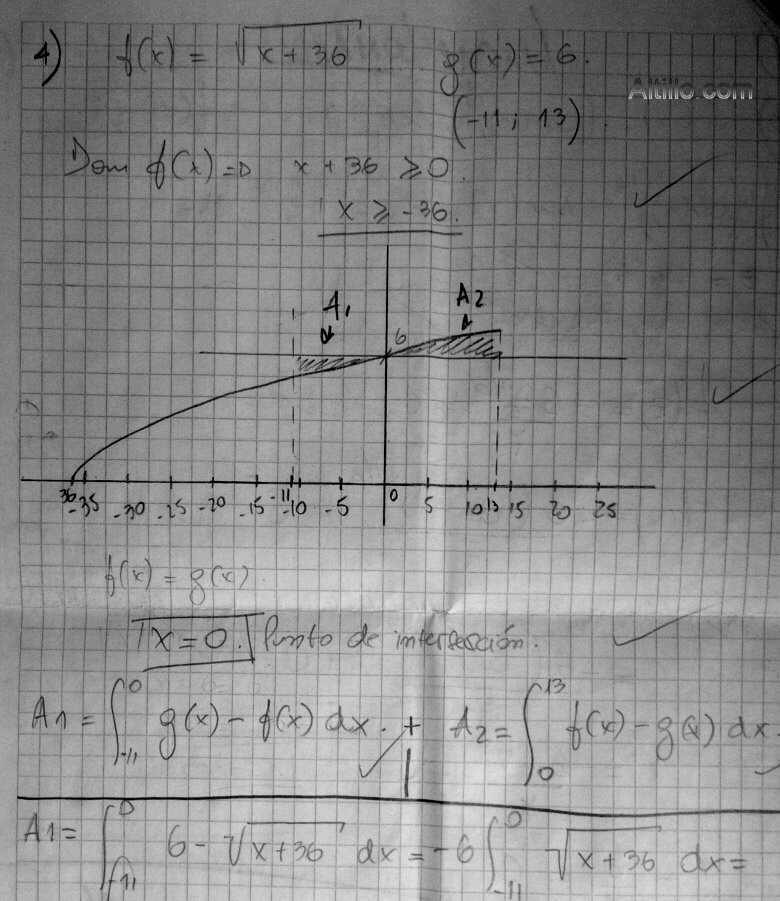 4) f(x) = √(x+36) g(x) = 6.
Altillo.com
(-11 ; 13).
Dom f(x) ⇒ x + 36 ≥ 0.
x ≥ -36.
A1 A2
6
36 -35 -30 -25 -20 -15 -11 -10 -5 0 5 10 13 15 20 25
f(x) = g(x)
x = 0. Punto de intersección.
A1 = ∫₋₁₁⁰ g(x) - f(x) dx. + A2 = ∫₀¹³ f(x) - g(x) dx
A1 = ∫₋₁₁⁰ 6 - √(x+36) dx = -6 ∫₋₁₁⁰ √(x+36) dx =